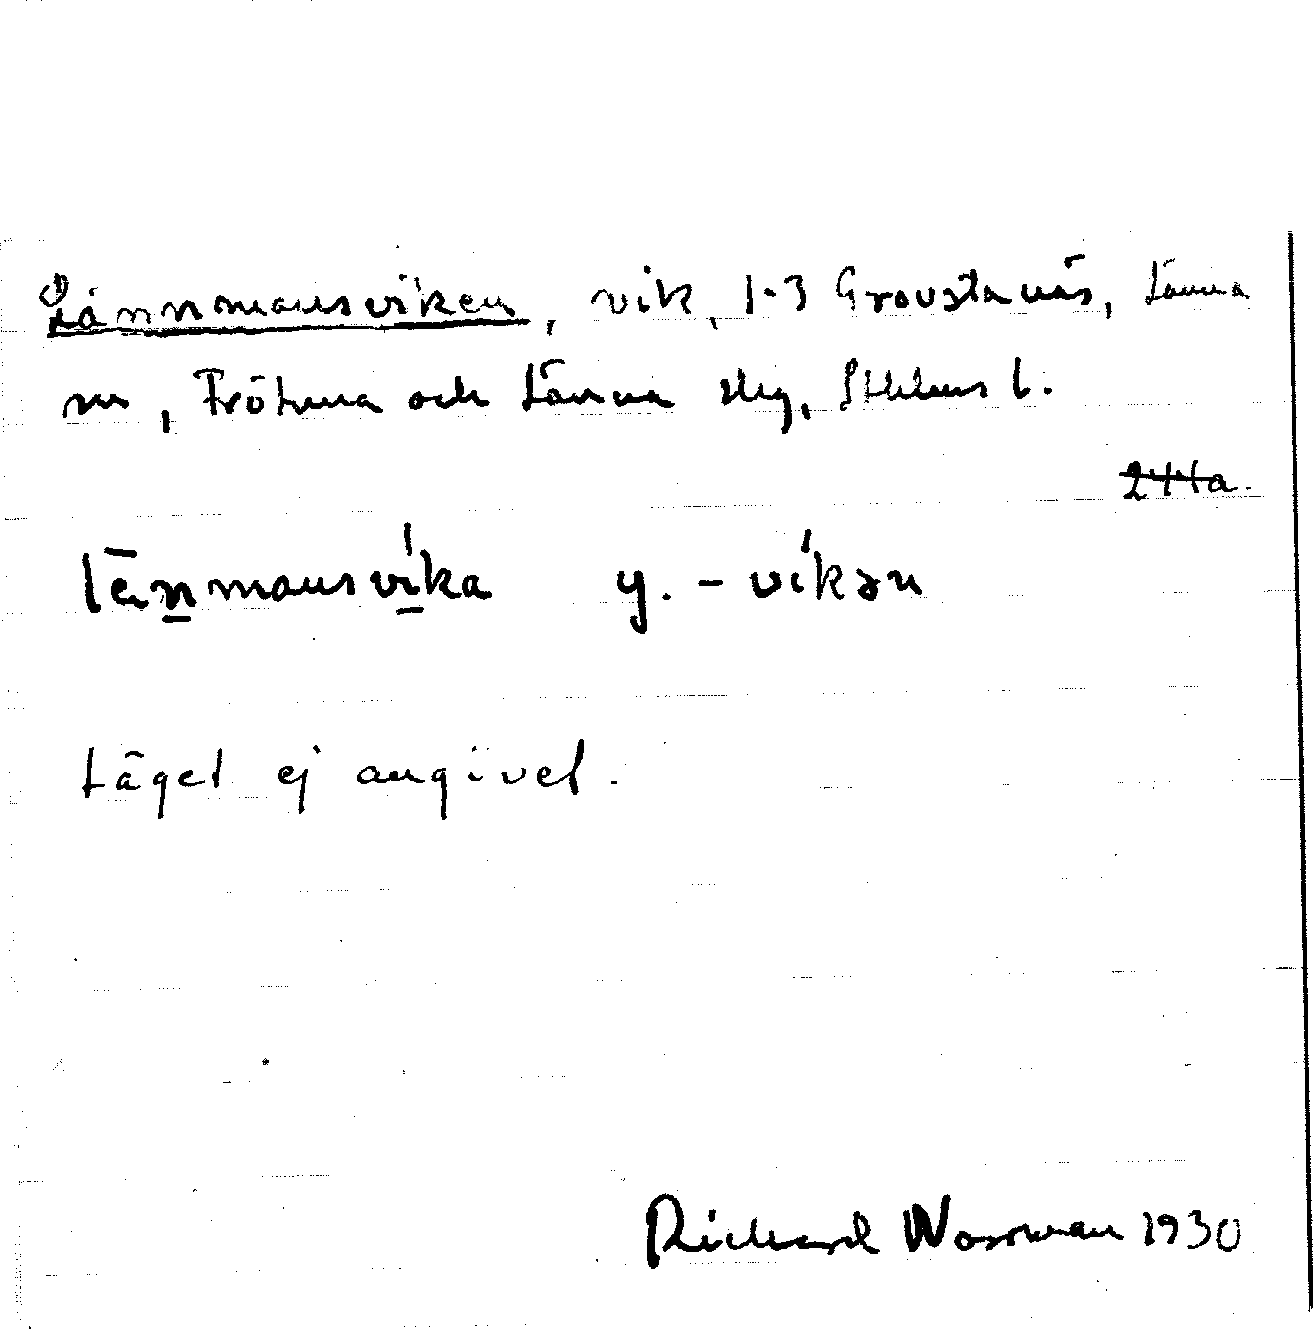 Lännmansviken, vik, 1-3 Grovstanäs, Länna
sn, Frötuna och Länna slg, Sthlms l.
244a.
lēnmansvíka y. - víkən
Läget ej angivet.
Richard Wossman 1930